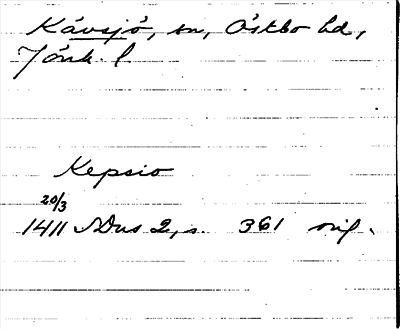 Kävsjö, sn, Östbo hd,
Jönk. l
Kepsio
20/3
1411 SDns 2, s. 361 orig.